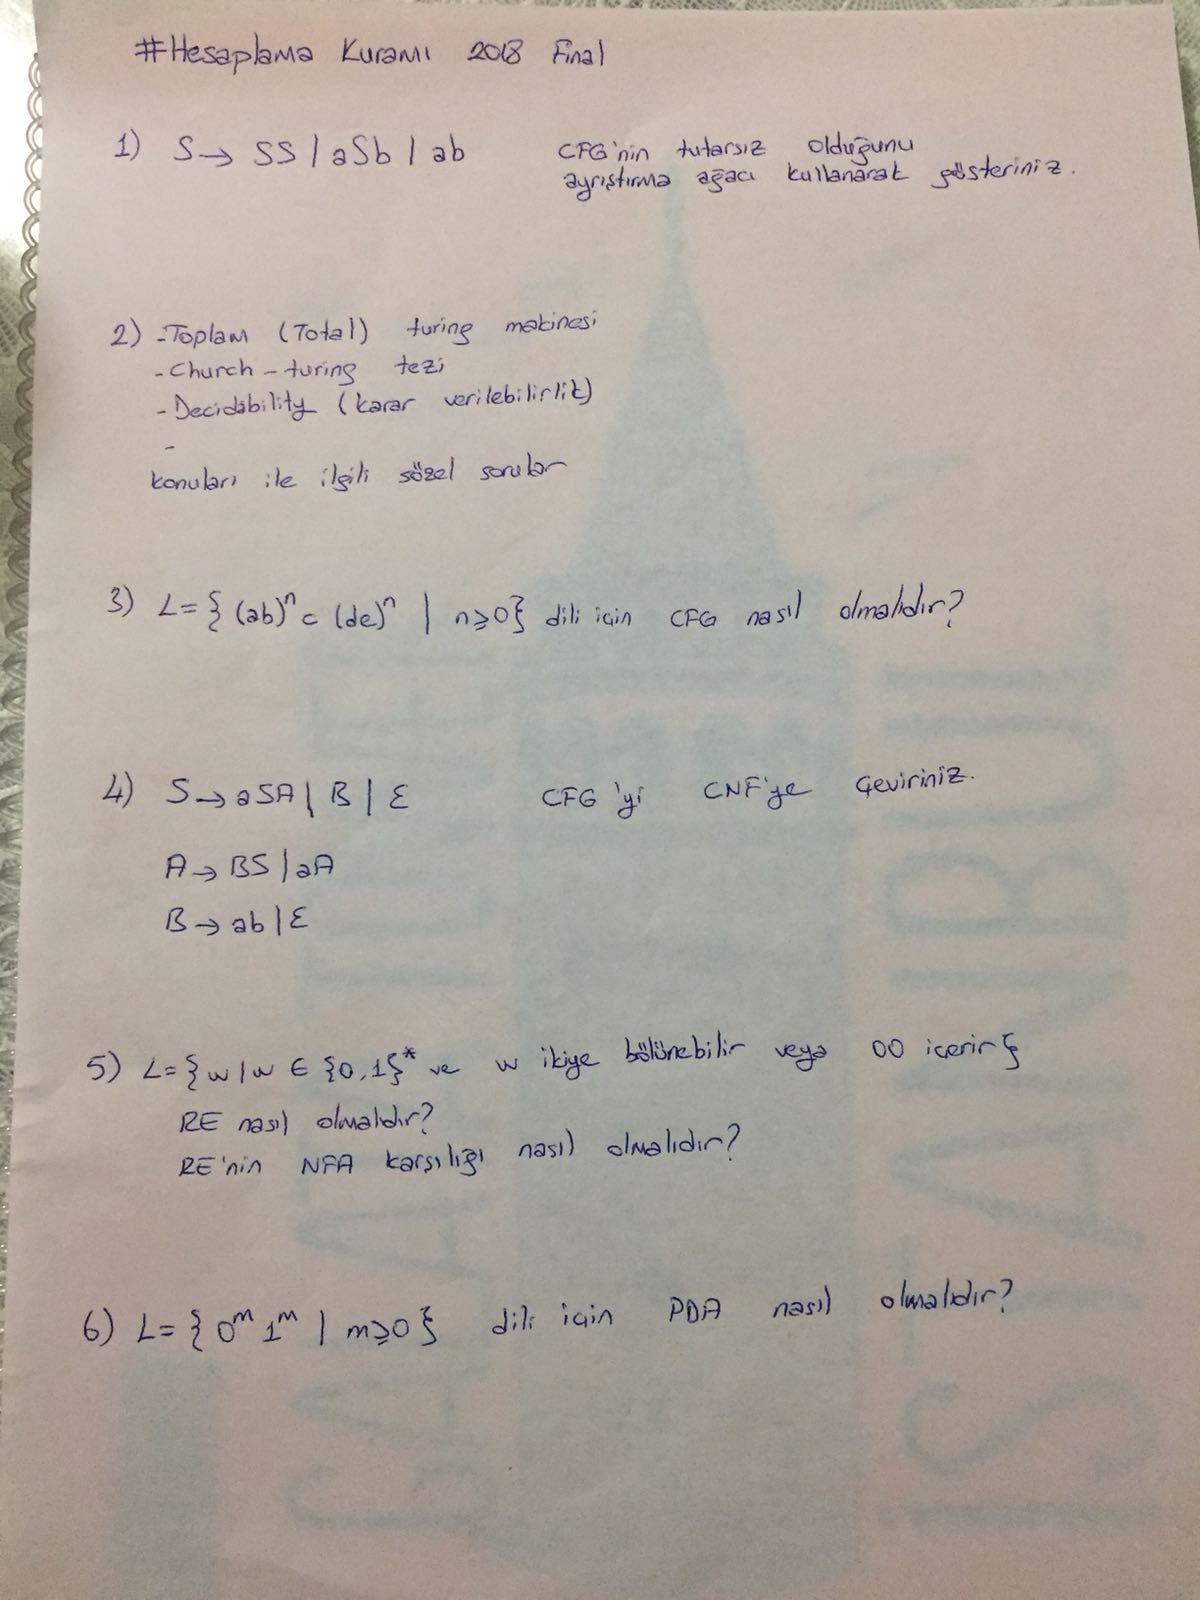 #Hesaplama Kuramı 2018 Final
1) S → SS | aSb | ab CFG'nin tutarsız olduğunu
ayrıştırma ağacı kullanarak gösteriniz.
2) -Toplam (Total) turing makinesi
- Church - turing tezi
- Decidability (karar verilebilirlik)
-
konuları ile ilgili sözel sorular
3) L = { (ab)ⁿ c (de)ⁿ | n≥0} dili için CFG nasıl olmalıdır?
4) S → aSA | B | ε CFG'yi CNF'ye çeviriniz.
A → BS | aA
B → ab | ε
5) L = { w | w ∈ {0,1}* ve w ikiye bölünebilir veya 00 içerir}
RE nasıl olmalıdır?
RE'nin NFA karşılığı nasıl olmalıdır?
6) L = { 0ᵐ 1ᵐ | m≥0 } dili için PDA nasıl olmalıdır?